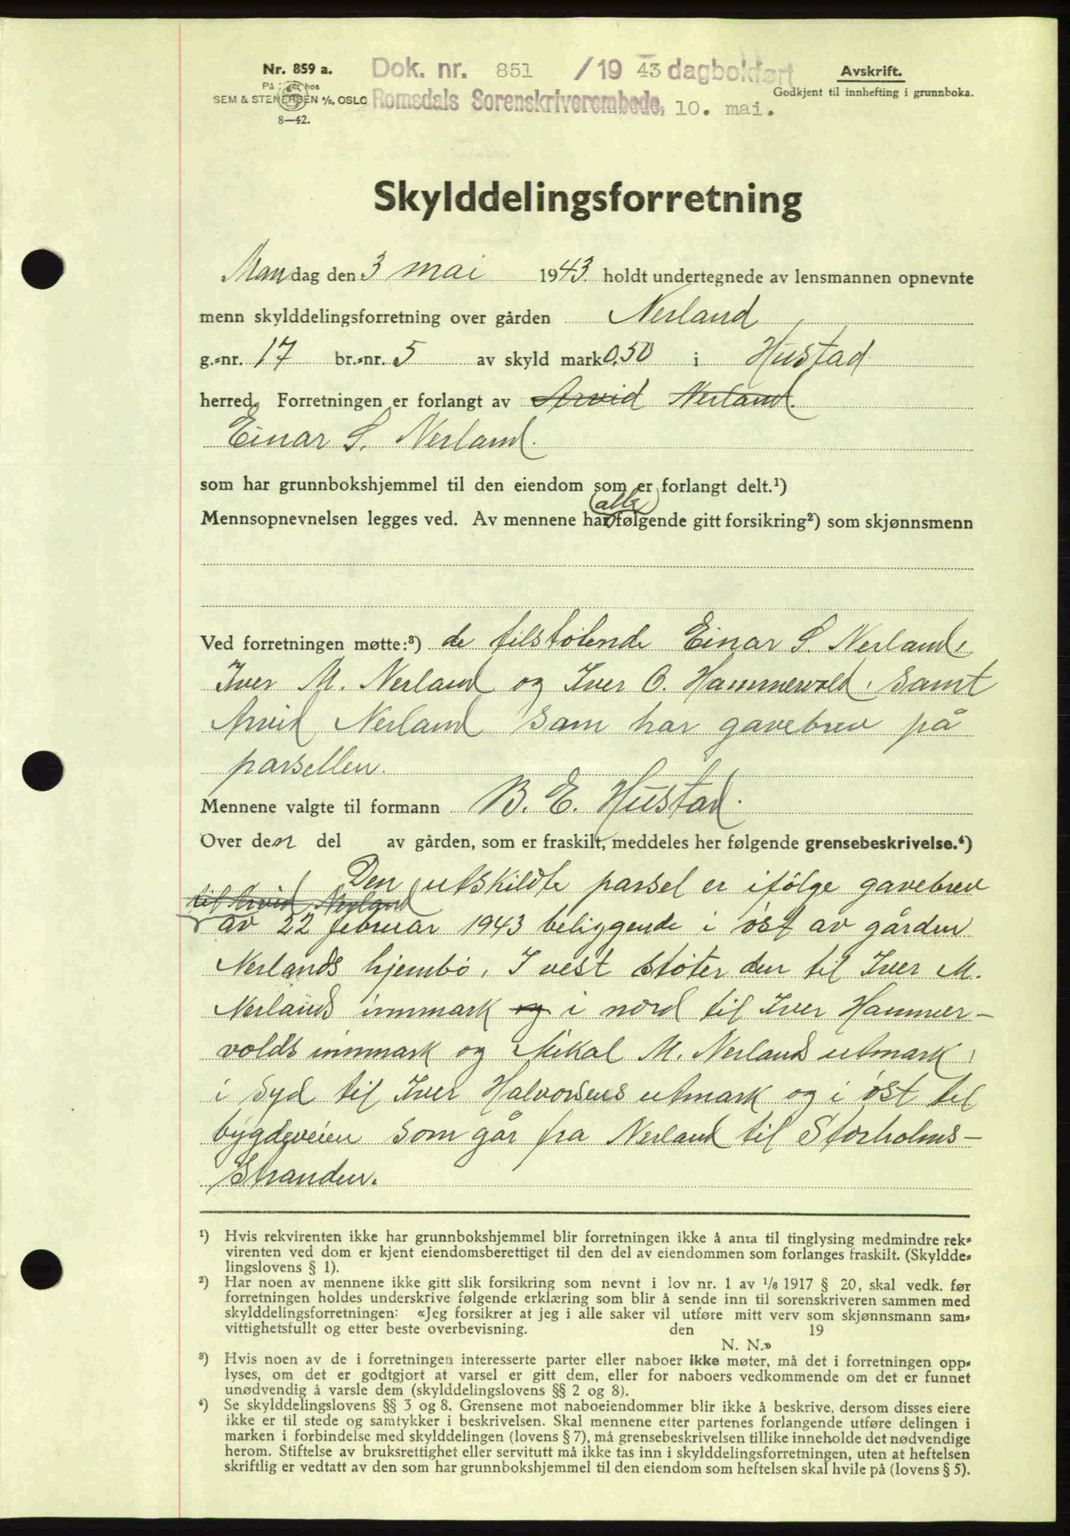 Nr. 859 a.
På lager hos
SEM & STENERSEN A/S, OSLO
8—42.
Dok. nr. 851 /19 43 dagbokført
Romsdals Sorenskriverembede, 10. mai.
Avskrift.
Godkjent til innhefting i grunnboka.
Skylddelingsforretning
Mandag den 3 mai 1943 holdt undertegnede av lensmannen opnevnte
menn skylddelingsforretning over gården Nerland
g.-nr. 17 br.-nr. 5 av skyld mark 0,50 i Hustad
herred. Forretningen er forlangt av Arvid Nerland.
Einar S. Nerland.
som har grunnbokshjemmel til den eiendom som er forlangt delt.¹)
(alle)
Mennsopnevnelsen legges ved. Av mennene har følgende gitt forsikring²) som skjønnsmenn
Ved forretningen møtte:³) de tilstøtende Einar S. Nerland,
Iver M. Nerland og Iver O. Hammervold. Samt
Arvid Nerland som har gavebrev på
parsellen.
Mennene valgte til formann B. E. Hustad.
Over den del av gården, som er fraskilt, meddeles her følgende grensebeskrivelse.⁴)
Den utskildte parsel er ifölge gavebrev
til Arvid Nerland
av 22 februar 1943 beliggende i öst av gården
Nerlands hjembö. I vest støter den til Iver M.
Nerlands innmark og i nord til Iver Hammer-
volds innmark og Mikal M. Nerlands utmark,
i syd til Iver Halvorsens utmark og i öst til
bygdeveien som går fra Nerland til Storholms-
stranden.
¹) Hvis rekvirenten ikke har grunnbokshjemmel blir forretningen ikke å anta til tinglysing medmindre rek-
virenten ved dom er kjent eiendomsberettiget til den del av eiendommen som forlanges fraskilt. (Skyldde-
lingslovens § 1).
²) Har noen av mennene ikke gitt slik forsikring som nevnt i lov nr. 1 av 1/6 1917 § 20, skal vedk. før
forretningen holdes underskrive følgende erklæring som blir å sende inn til sorenskriveren sammen med
skylddelingsforretningen: «Jeg forsikrer at jeg i alle saker vil utføre mitt verv som skjønnsmann sam-
vittighetsfullt og etter beste overbevisning. den 19
N. N.»
³) Hvis noen av de i forretningen interesserte parter eller naboer ikke møter, må det i forretningen opp-
lyses, om det er godtgjort at varsel er gitt dem, eller for naboers vedkommende om det er funnet
unødvendig å varsle dem (skylddelingslovens §§ 2 og 8).
⁴) Se skylddelingslovens §§ 3 og 8. Grensene mot naboeiendommer blir ikke å beskrive, dersom disses eiere
ikke er til stede og samtykker i beskrivelsen. Skal mennene etter partenes forlangende utføre delingen i
marken i forbindelse med skylddelingen (lovens § 7), må grensebeskrivelsen tillike inneholde det nødvendige
herom. Stiftelse av bruksrettighet eller servitutt må ikke tas inn i skylddelingsforretningen, uten at heftelsen
skriftlig er vedtatt av den som har grunnbokshjemmel til den eiendom som heftelsen skal hvile på (lovens § 5).